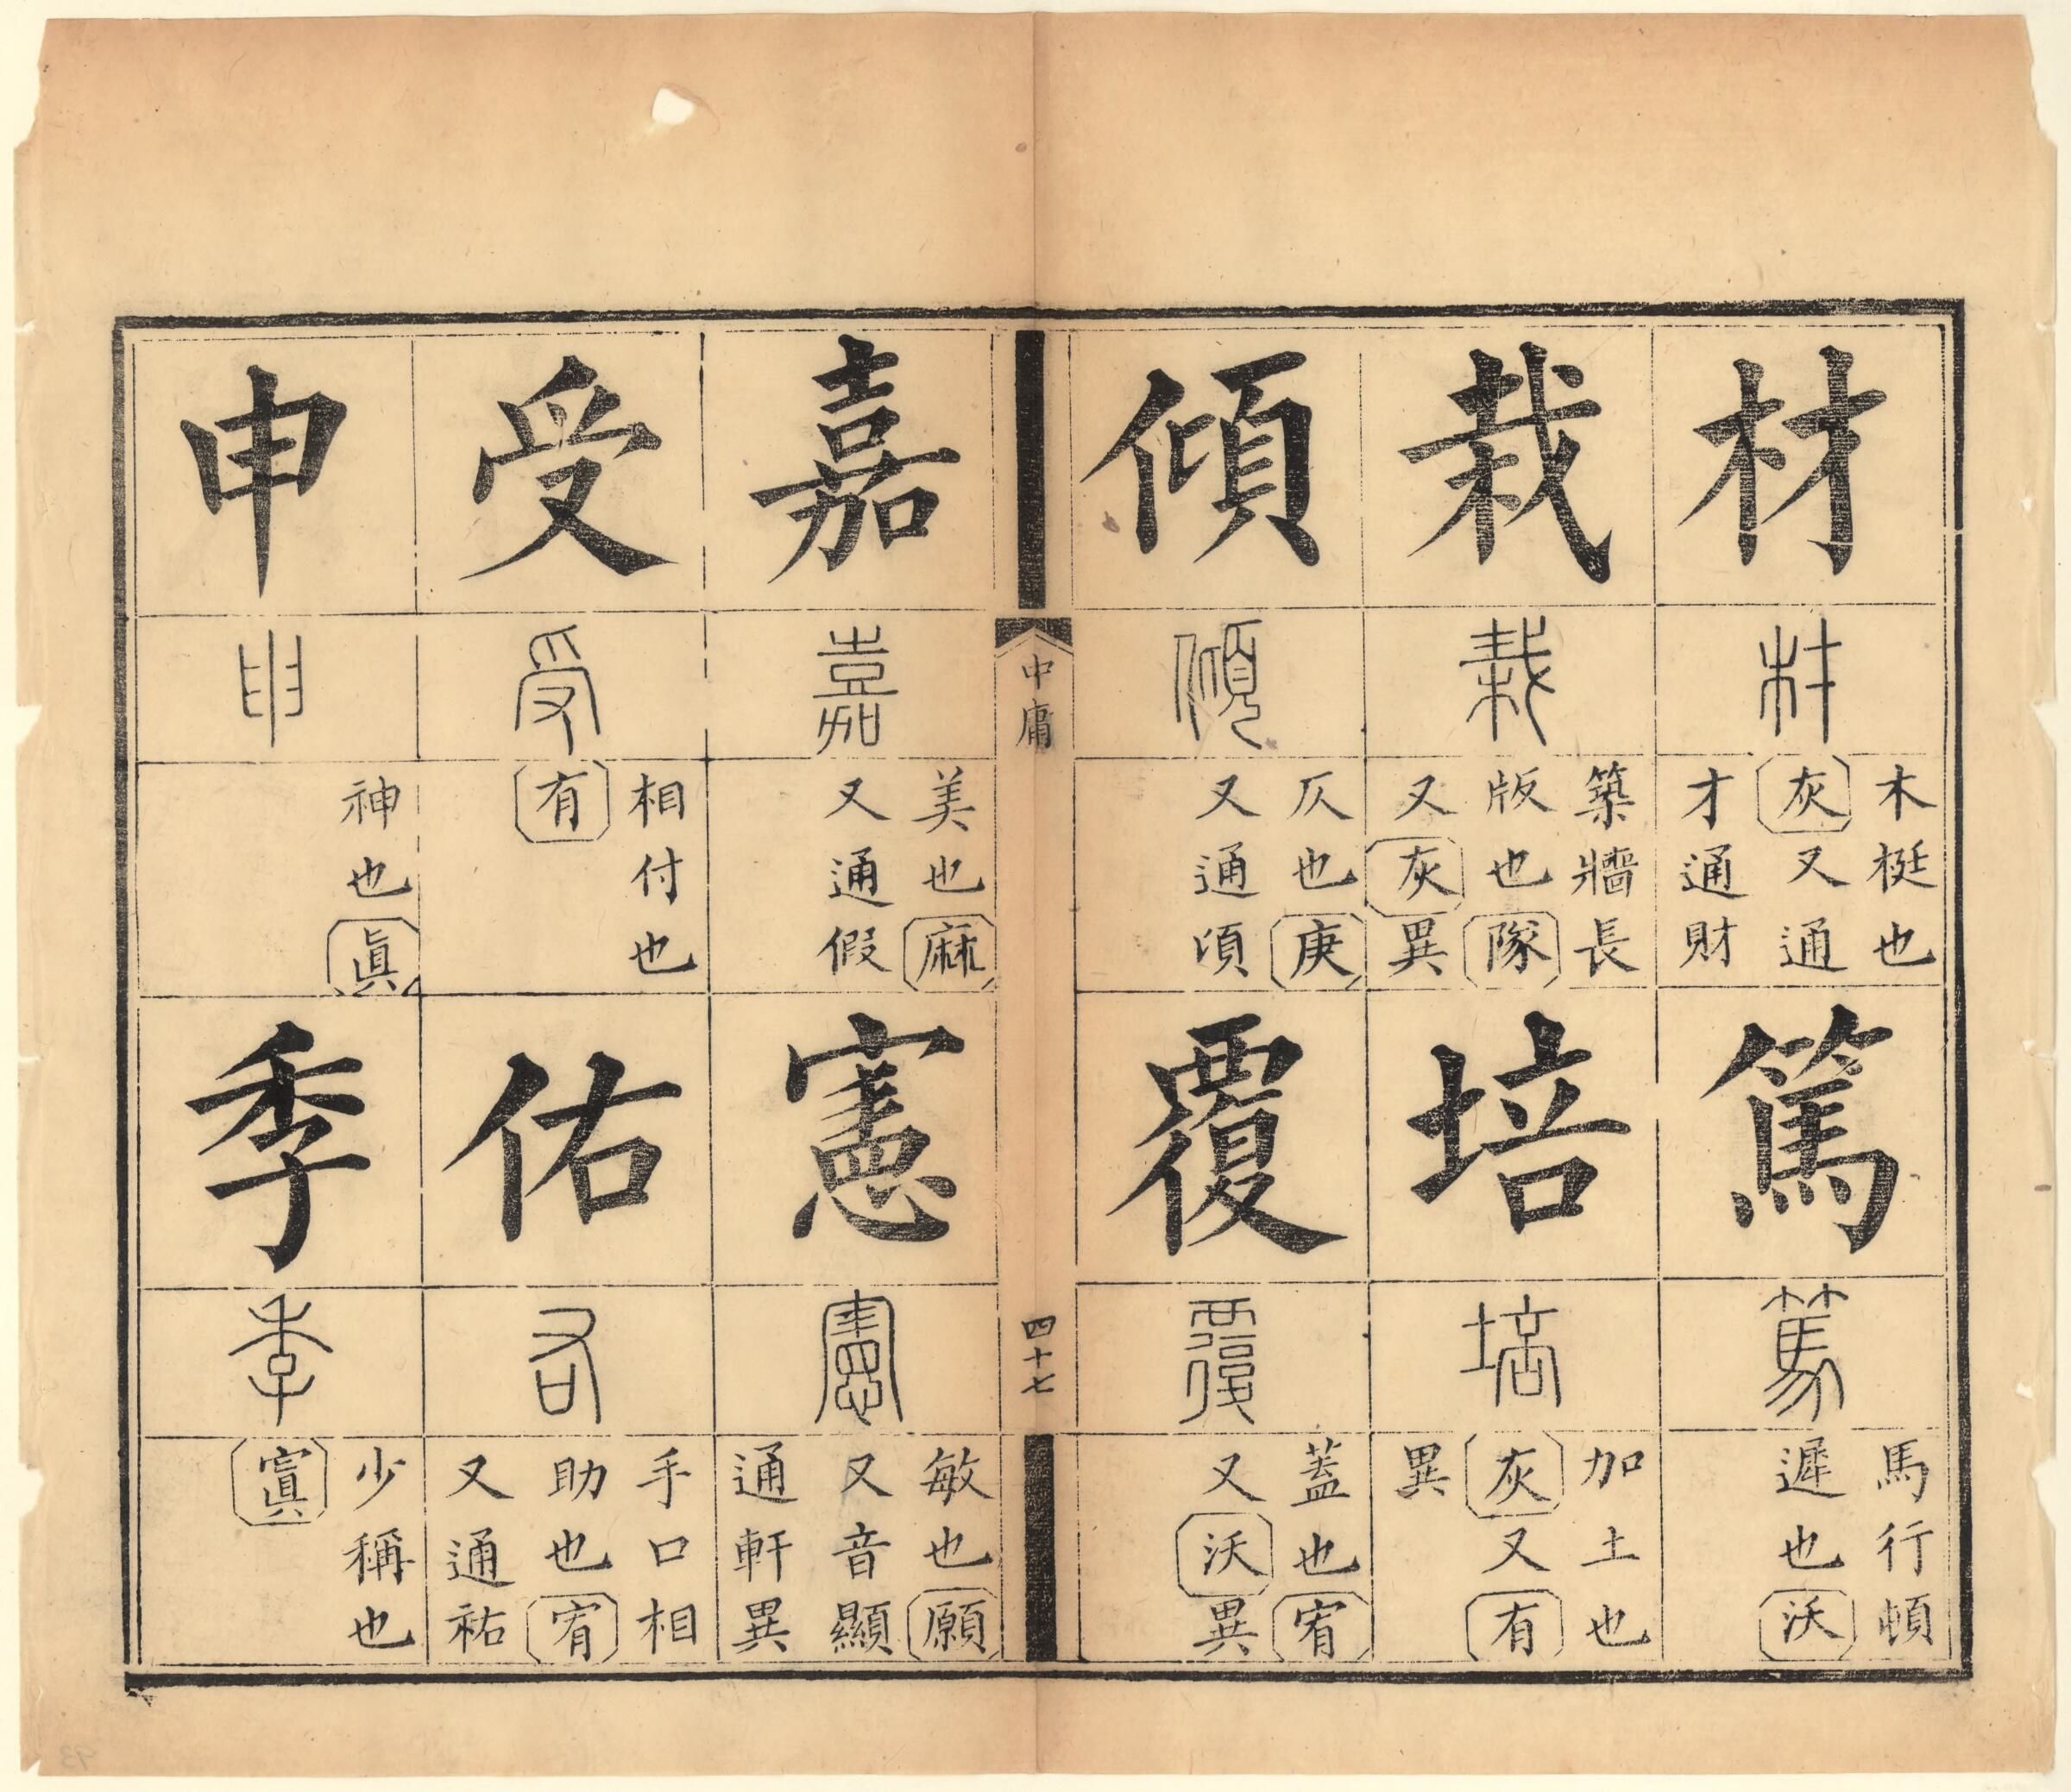 材
材
木梃也
灰又通
才通財
篤
篤
馬行頓
遲也沃
栽
栽
築牆長
版也隊
又灰異
培
培
加土也
灰又有
異
傾
傾
仄也庚
又通頃
覆
覆
蓋也宥
又沃異
中庸
四十七
嘉
嘉
美也麻
又通假
憲
憲
敏也願
又音顯
通軒異
受
受
相付也
有
佑
右
手口相
助也宥
又通祐
申
申
神也眞
季
季
少稱也
寘